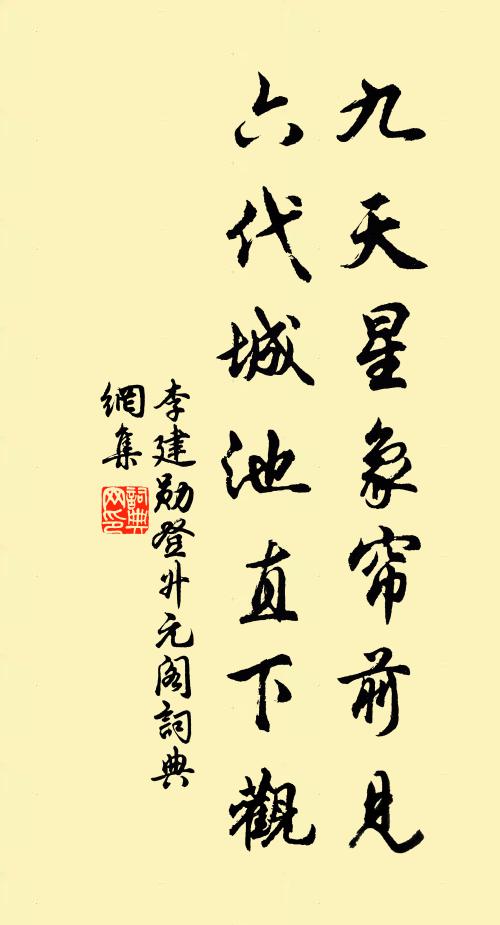 九天星象帘前見
六代城池直下觀
李建勛登升元阁詞典
網集
詞典
网印